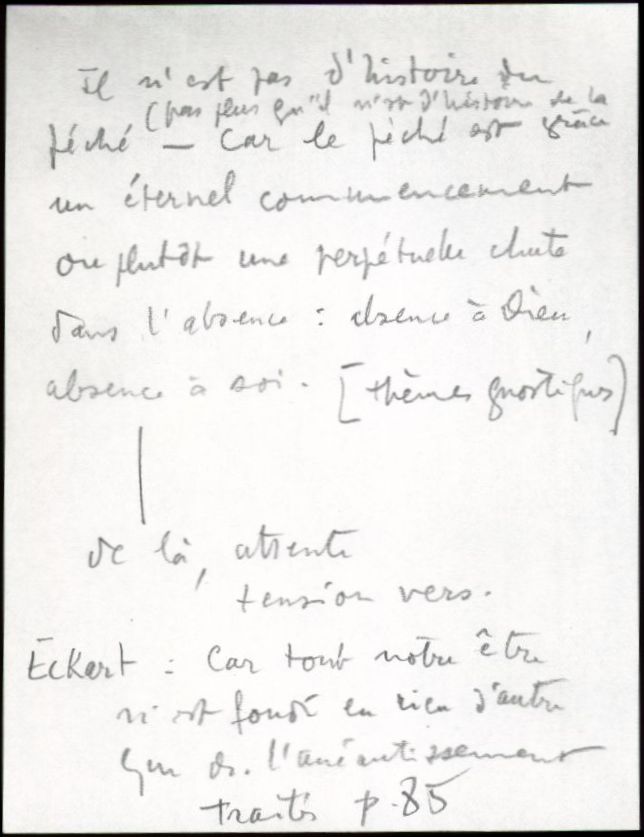 Il n'est pas d'histoire du
(pas plus qu'il n'est d'histoire de la
péché — Car le péché est grâce
un éternel commencement
ou plutôt une perpétuelle chute
dans l'absence : absence à Dieu,
absence à soi. [thèmes gnostiques]
de là, attente
tension vers.
Eckart : Car tout notre être
n'est fondé en rien d'autre
que ds. l'anéantissement
traités p. 85